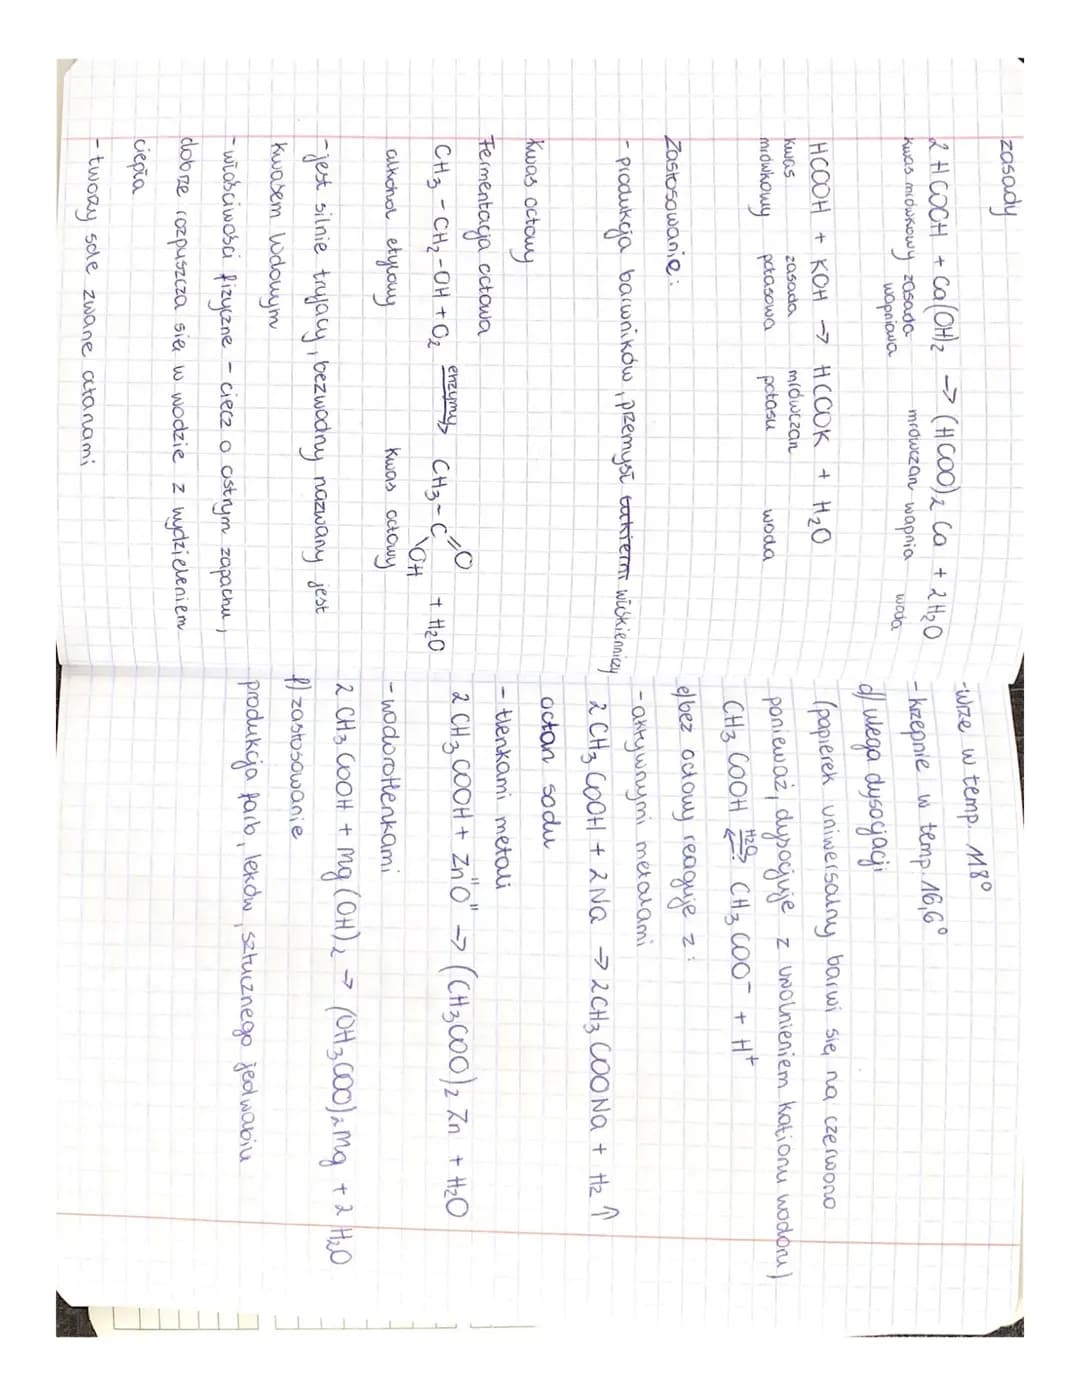 zasady
2 HCOOH + Ca(OH)₂ → (HCOO)₂ Ca + 2H₂O
kwas mrówkowy zasada wapniowa mrówczan wapnia woda
HCOOH + KOH → HCOOK + H₂O
kwas mrówkowy zasada potasowa mrówczan potasu woda
Zastosowanie:
- produkcja barwników, przemysł włókienniczy
Kwas octowy
Fermentacja octowa
CH₃ - CH₂ - OH + O₂ enzymy→ CH₃ - C =O \OH + H₂O
alkohol etylowy kwas octowy
- jest silnie trujący, bezwodny nazwany jest
kwasem lodowym
- właściwości fizyczne - ciecz o ostrym zapachu,
dobrze rozpuszcza się w wodzie z wydzieleniem
ciepła
- tworzy sole zwane octanami
- wrze w temp. 118°
- krzepnie w temp. 16,6°
d) ulega dysocjacji
(papierek uniwersalny barwi się na czerwono
ponieważ, dysocjuje z uwolnieniem kationu wodoru)
CH₃ COOH H₂O⇄ CH₃ COO⁻ + H⁺
e) bez octowy reaguje z:
- aktywnymi metalami
2 CH₃ COOH + 2 Na → 2 CH₃ COONa + H₂ ↑
octan sodu
- tlenkami metali
2 CH₃ COOH + ZnO → (CH₃COO)₂ Zn + H₂O
- wodorotlenkami
2 CH₃ COOH + Mg (OH)₂ → (CH₃COO)₂ Mg + 2 H₂O
f) zastosowanie
produkcja farb, leków, sztucznego jedwabiu